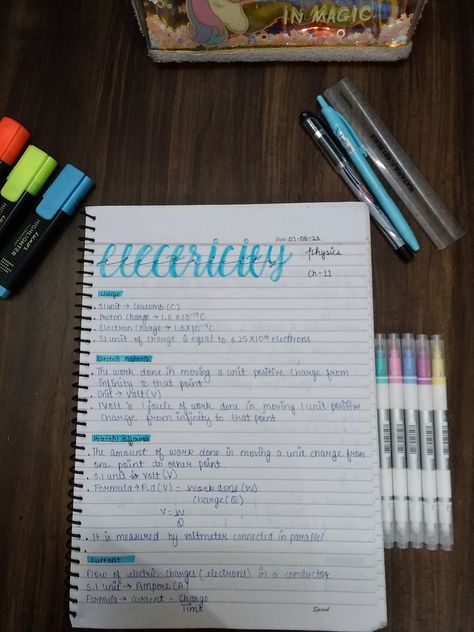 IN MAGIC
HIGHLIGHTER
HIGHLIGHTER
Date 07-08-23
electricity
physics
Ch-11
Charge
. SI unit → Coulomb (C)
. Proton Charge → 1.6 x 10⁻¹⁹ C
. Electron Charge → 1.6 x 10⁻¹⁹ C
. SI unit of charge is equal to 6.25 x 10¹⁸ electrons.
Electric Potential
. The work done in moving a unit positive charge from
infinity to that point
. Unit → Volt (V)
. 1 Volt is 1 joule of work done in moving 1 unit positive
charge from infinity to that point
Potential difference
. The amount of work done in moving a unit charge from
one point to other point
. S.I unit is Volt (V)
. Formula → P.d (V) = work done (W)
charge (Q)
V = W
Q
. It is measured by voltmeter connected in parallel
Current
Flow of electric charges (electrons) in a conductor
S.I unit → Ampere (A)
Formula → current = Charge
Time
Spiral